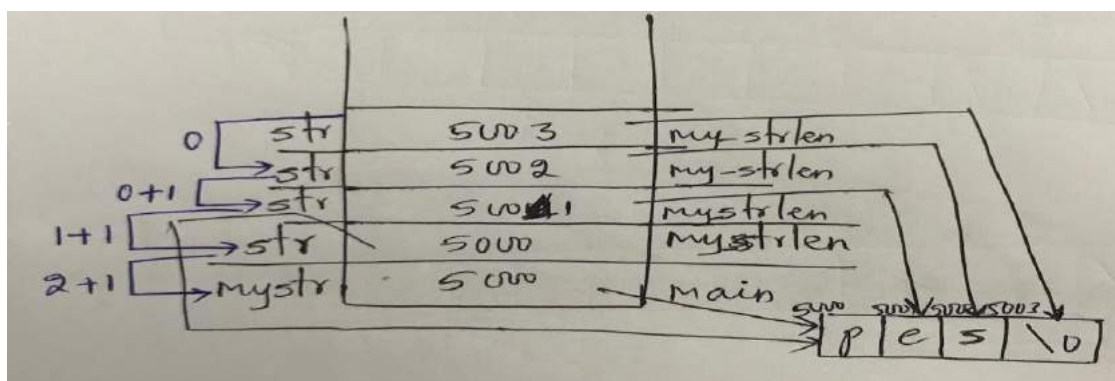 0 str 5003 my-strlen
0+1 str 5002 my-strlen
1+1 str 5001 mystrlen
2+1 str 5000 mystrlen
mystr 5000 main
5000 5001 5002 5003
p e s \0